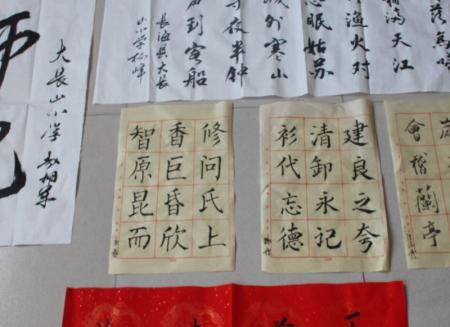 落烏啼
满天江
渔火对
眠姑苏
外寒山
夜半钟
到客船
長海縣大長
山小学
大長山小学
會稽
蘭亭
建良之夸
清卸永记
衫代忘德
修问氏上
香巨昏欣
智原昆而